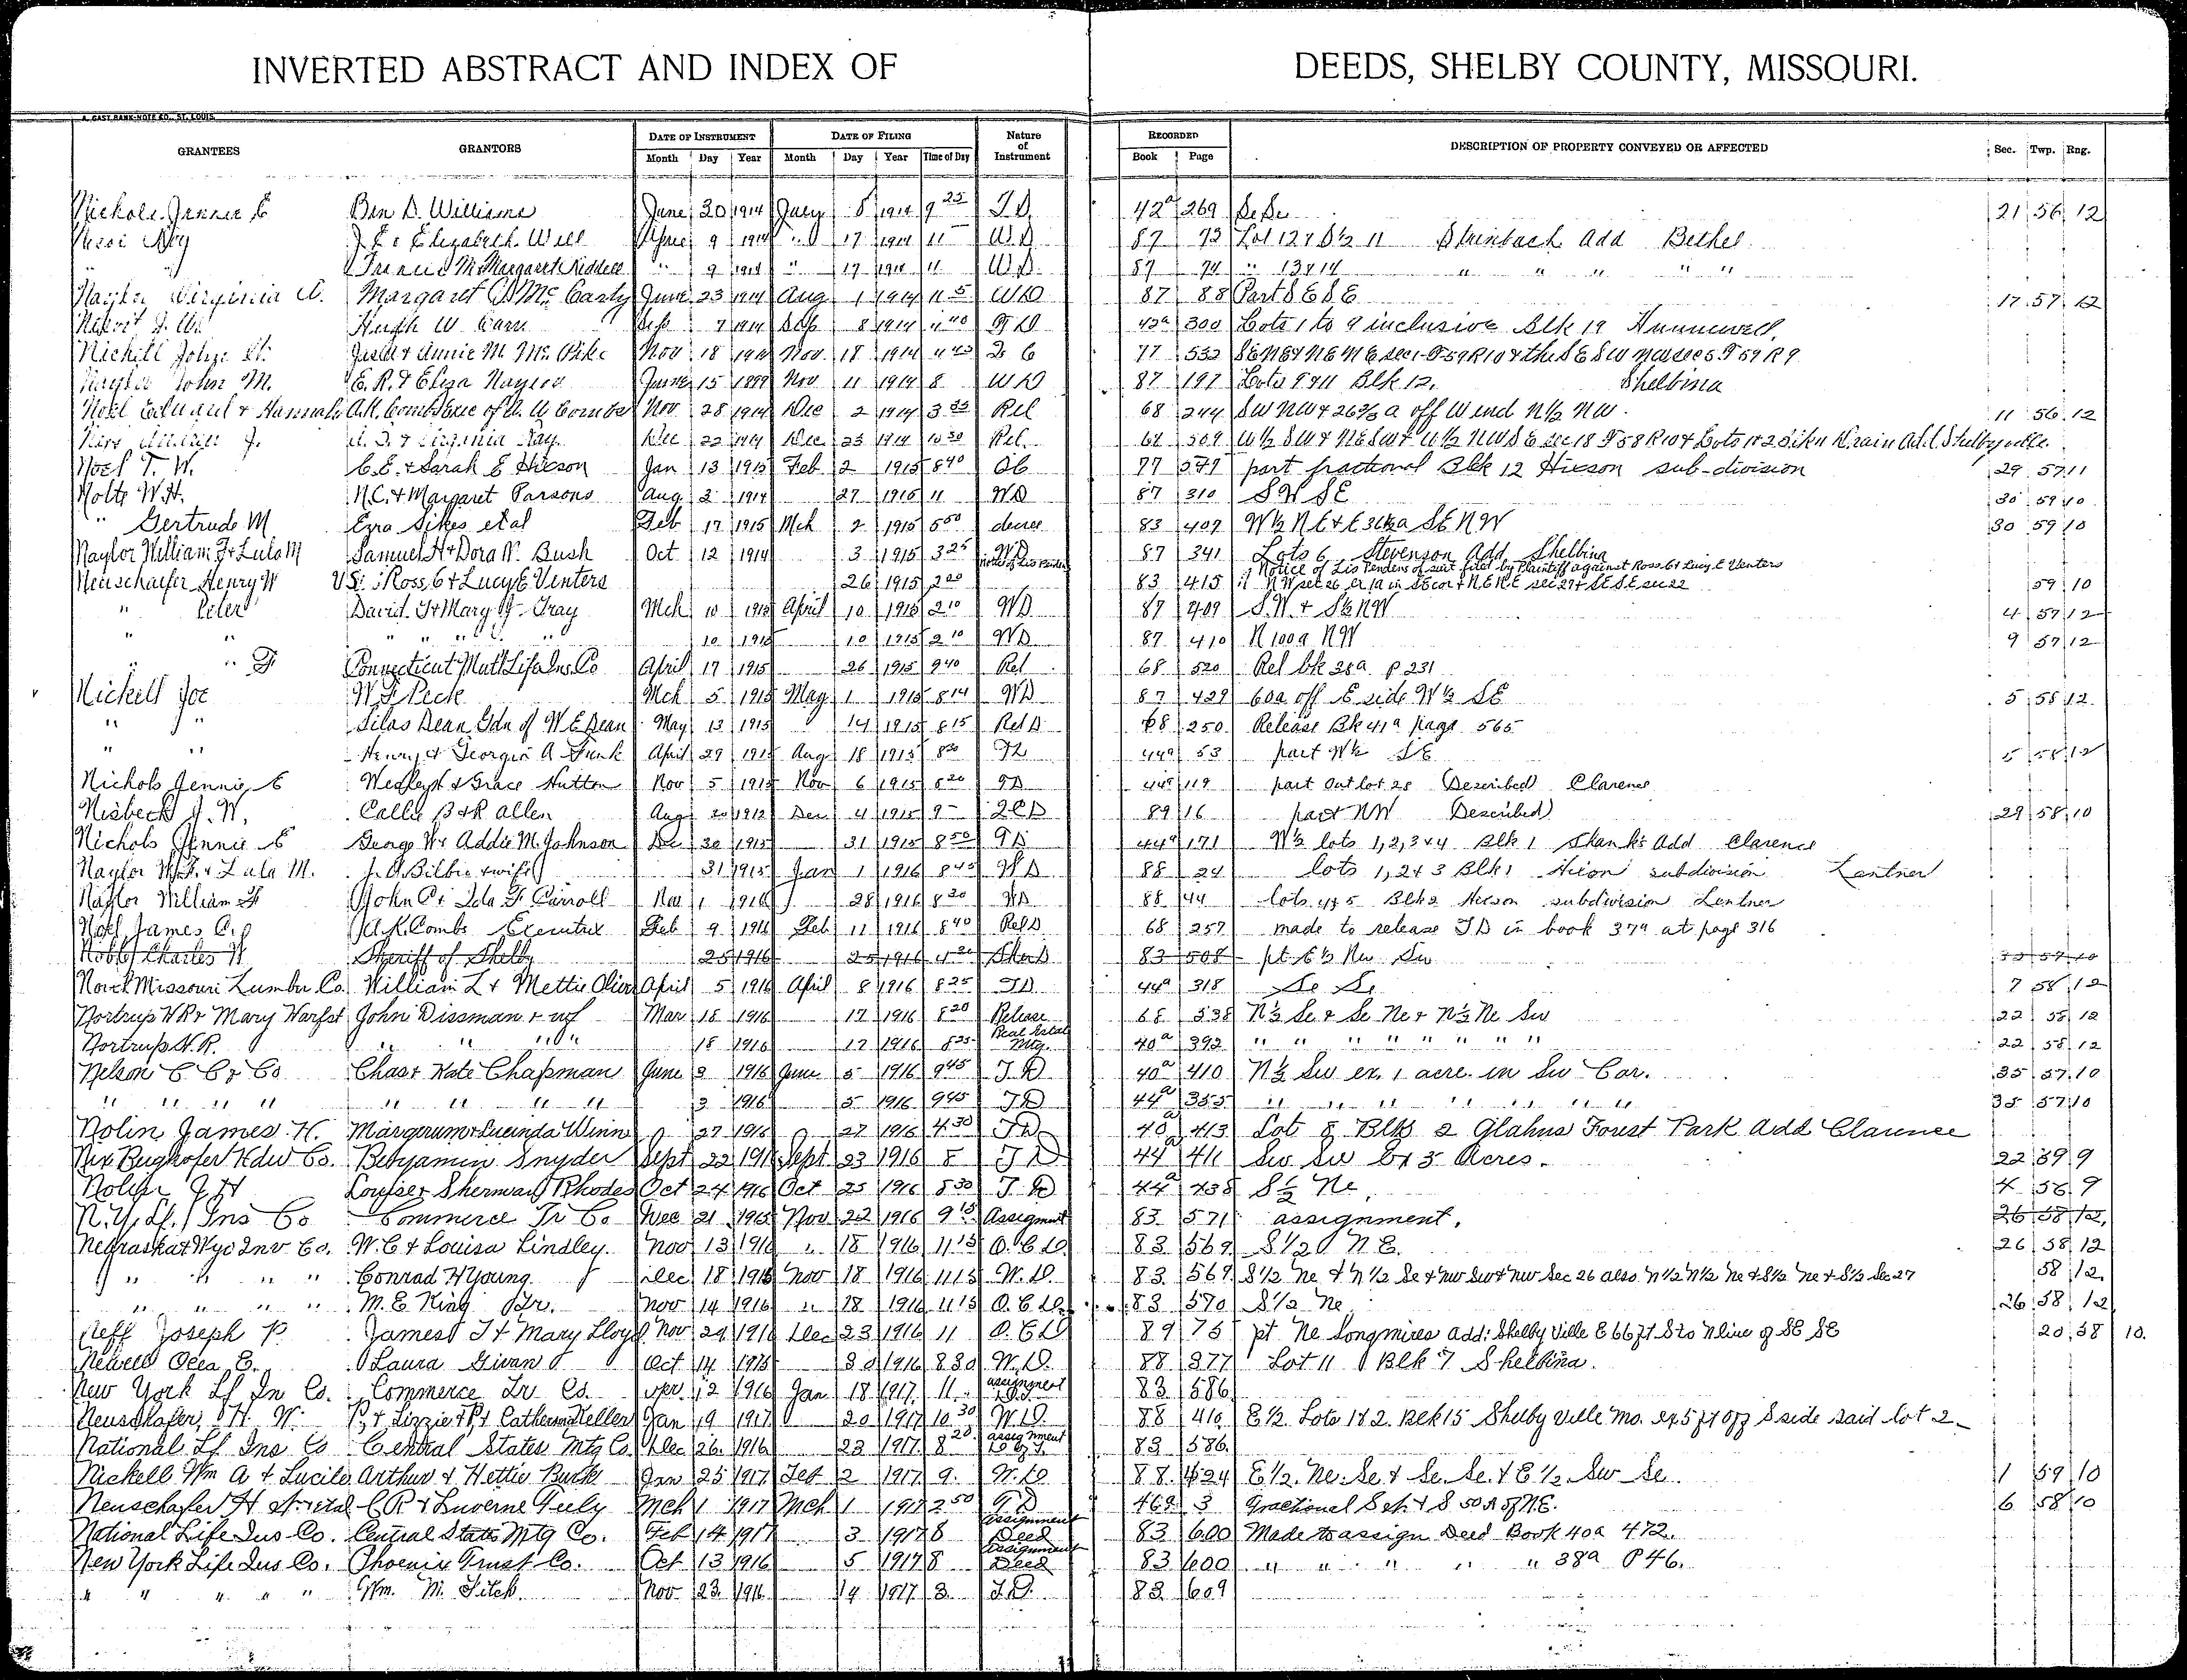 INVERTED ABSTRACT AND INDEX OF DEEDS, SHELBY COUNTY, MISSOURI.
A. GAST BANK-NOTE CO., ST. LOUIS.
GRANTEES GRANTORS DATE OF INSTRUMENT DATE OF FILING Nature of Instrument RECORDED DESCRIPTION OF PROPERTY CONVEYED OR AFFECTED Sec. Twp. Rng.
Month Day Year Month Day Year Time of Day Book Page
Nichols Jennie E Ben D. Williams June 30 1914 July 8 1914 9 25 T D 42a 269 Se Se 21 56 12
J E & Elizabeth Will 9 1914 " 17 1914 11 W D 87 73 Lot 12 & S½ 11 Steinbach Add Bethel
Francis M & Margaret Riddell " 9 1914 " 17 1914 11 W D. 87 74 " 13 & 14 " " " " "
Naylor Virginia A. Margaret McCarty June 23 1914 Aug 1 1914 11 5 WD 87 88 Part S E S E 17 57 12
Hugh W 7 1914 Sep 8 1914 11 40 T D 42a 300 Lots 1 to 9 inclusive Blk 19 Hunnewell,
Nickell John & Annie M. McPike Nov 18 1914 Nov. 18 1914 77 532 SENE & NENE sec 1-T59R10 & the SESW sec 5. T59 R9
Naylor John M. E. R. & Eliza Naylor June 15 1899 Nov 11 1914 8 WD 87 197 Lots 9 & 11 Blk 12, Shelbina
Noel Edward & Hannah A.K. Combs Exec of Combs Nov 28 1914 Dec 2 1914 3 35 Rel 68 244 SW NW & 26⅔ a off W end N½ NW. 11 56 12
& Virginia Ray Dec 22 1914 Dec 23 1914 10 30 Rel. 68 509 W½ SW & NESW & W½ NWSE sec 18 T58 R10 & Lots 1 & 2 Drain Add. Shelbyville.
Noel T. W. C.E. & Sarah E Hixson Jan 13 1915 Feb 2 1915 8 40 77 part fractional Blk 12 Hixson sub-division 29 57 11
Nolte W.H. N.C. & Margaret Parsons Aug 2 1914 27 1915 11 WD 87 310 SW SE 30 59 10
" Gertrude M Ezra Sikes etal Feb 17 1915 Mch 2 1915 5 50 decree 83 409 W½ NE & E SE NW 30 59 10
Naylor William F & Lula M Samuel H & Dora N. Bush Oct 12 1914 3 1915 3 25 WD 87 341 Lots 6 Stevenson Add Shelbina
Neuschafer Henry W VS : Ross, C & Lucy E Venters 26 1915 2 00 Notice of Lis Pendens 83 415 Notice of Lis Pendens of suit filed by Plaintiff against Ross C & Lucy E Venters
NW sec 26 ex 1a in SE cor & NENE sec 27 & SESE sec 22 59 10
" Peter David & Mary J. Gray Mch 10 1915 April 10 1915 2 10 WD 87 409 S.W. & S½ NW 4 57 12
" " " " " " 10 1915 10 1915 2 10 WD 87 410 N 100a NW 9 57 12
" " F Connecticut Mutl Life Ins Co April 17 1915 26 1915 9 40 Rel 68 520 Rel bk 38a p 231
Nickell Joe W F Peck Mch 5 1915 May 1 1915 8 14 WD 87 429 60a off E side W½ SE 5 58 12
" " Silas Dean Gdn of W E Dean May 13 1915 14 1915 8 15 Rel D 68 250 Release Bk 41a page 565
" " Henry & Georgia A Funk April 29 1915 Aug 18 1915 8 30 44a 53 part W½ SE 5 58 12
Nichols Jennie E & Grace Hutton Nov 5 1915 Nov 6 1915 8 20 TD 44a 119 part Out lot 28 (Described) Clarence
Nisbeck J. W. Callie B & R Allen Aug 20 1912 Dec 4 1915 9 - QCD 89 16 part NW (Described) 29 58 10
Nichols Jennie E George W & Addie M. Johnson Dec 30 1915 31 1915 8 50 TD 44a 171 W½ lots 1,2,3 & 4 Blk 1 Shank's Add Clarence
Naylor W.F. & Lula M. J. A. Bilbie & wife 31 1915 Jan 1 1916 8 45 WD 88 24 lots 1, 2 & 3 Blk 1 Hixon subdivision Lentner
Naylor William F John C & Ida F Carroll 1 1916 28 1916 8 30 WD 88 44 lots 4 & 5 Blk 2 Hixson subdivision Lentner
Noel James C. A. K. Combs Executrix Feb 9 1916 Feb 11 1916 8 40 Rel D 68 257 made to release TD in book 37a at page 316
Charles W Sheriff of Shelby 25 1916 25 1916 4 20 Sher D 83 508 pt E½ Nw Sw
North Missouri Lumber Co. William L & Mettie Oliver April 5 1916 April 8 1916 8 25 TD 44a 318 Se Se 7 58 12
Nortrup W R & Mary Warfst John Dissman & wf Mar 18 1916 17 1916 8 20 Release 68 538 N½ Se & Se Ne & N½ Ne Sw 22 58 12
Nortrup N.R. " " " 18 1916 17 1916 8 25 Real Estate Mtg. 40a 392 " " " " " " " " 22 58 12
Nelson C C & Co Chas & Kate Chapman June 3 1916 June 5 1916 9 45 T.D. 40a 410 N½ Sw ex. 1 acre in Sw Cor. 35 57 10
" " " " " " " " 3 1916 5 1916 9 45 TD 44a 355 " " " " " " " " 35 57 10
Nolin James H. Margerum & Lucinda Winn 27 1916 27 1916 4 30 TD 40a 413 Lot 8 Blk 2 Glahns Forest Park Add Clarence
Nix Bughofer Hdw Co. Benjamin Snyder Sept 22 1916 Sept 23 1916 8 T D 44a 411 Sw Sw Ex 3 Acres. 22 59 9
J H Louise & Sherman Rhodes Oct 24 1916 Oct 25 1916 8 30 T. D 44a 438 S½ Ne, 4 56 9
N.Y. Lf. Ins Co Commerce Tr Co Dec 21 1915 Nov 22 1916 9 15 Assignmt 83 571 assignment. 26 58 12
Nebraska & Wyo Inv Co. W. C & Louisa Lindley. Nov 13 1916 " 18 1916 11 15 Q. C D. 83 569 S ½ N E. 26 58 12
" " " " Conrad H Young. Dec 18 1915 Nov 18 1916 11 15 W. D. 83 569 S½ Ne & N½ Se & Nw Sw & Nw Sec 26 also N½ N½ Ne & S½ Ne & S½ Sec 27 58 12
" " " " M. E King Nov 14 1916 " 18 1916 11 15 Q. C D. 83 570 S½ Ne 26 58 12
Neff Joseph P. James T & Mary Lloyd Nov 29 1916 Dec 23 1916 11 Q. C D 89 75 pt Ne Longmires add: Shelby Ville E 66 ft S to N line of SE SE 20 58 10.
Newell Ocea E. Laura Givan Oct 14 1915 30 1916 8 30 W. D. 88 377 Lot 11 Blk 7 Shelbina.
New York Lf In Co. Commerce Tr Co. 12 1916 Jan 18 1917 11 assignment 83 586
Neuschafer, H. W. P & Lizzie & P & Catherine Keller Jan 19 1917 20 1917 10 30 W. D. 88 410 E½ Lots 1 & 2. Blk 15 Shelby Ville Mo. ex 5 ft off S side said lot 2
National Lf Ins Co Central States Mtg Co. Dec 26. 1916 23 1917 8 20 assignment 83 586
Nickell Wm A & Lucile Arthur & Hettie Buck Jan 25 1917 Feb 2 1917 9. W. D 88 424 E½. Ne. Se. & Se. Se. & E½. Sw Se. 1 59 10
Neuschafer H etal C R & Luverne Feely Mch 1 1917 Mch 1 1917 2 50 T D 46a 3 Fractional S & S 50 A of NE. 6 58 10
National Life Ins Co. Central States Mtg Co. Feb 14 1917 3 1917 8 Assignment Deed 83 600 Made to assign Deed Book 40a 472.
New York Life Ins Co. Phoenix Trust Co. Oct 13 1916 5 1917 8 Assignment Deed 83 600 " " " " " 38a P 46.
" " " " " Wm. M. Fitch. Nov 23 1916 14 1917 3 T.D. 83 609